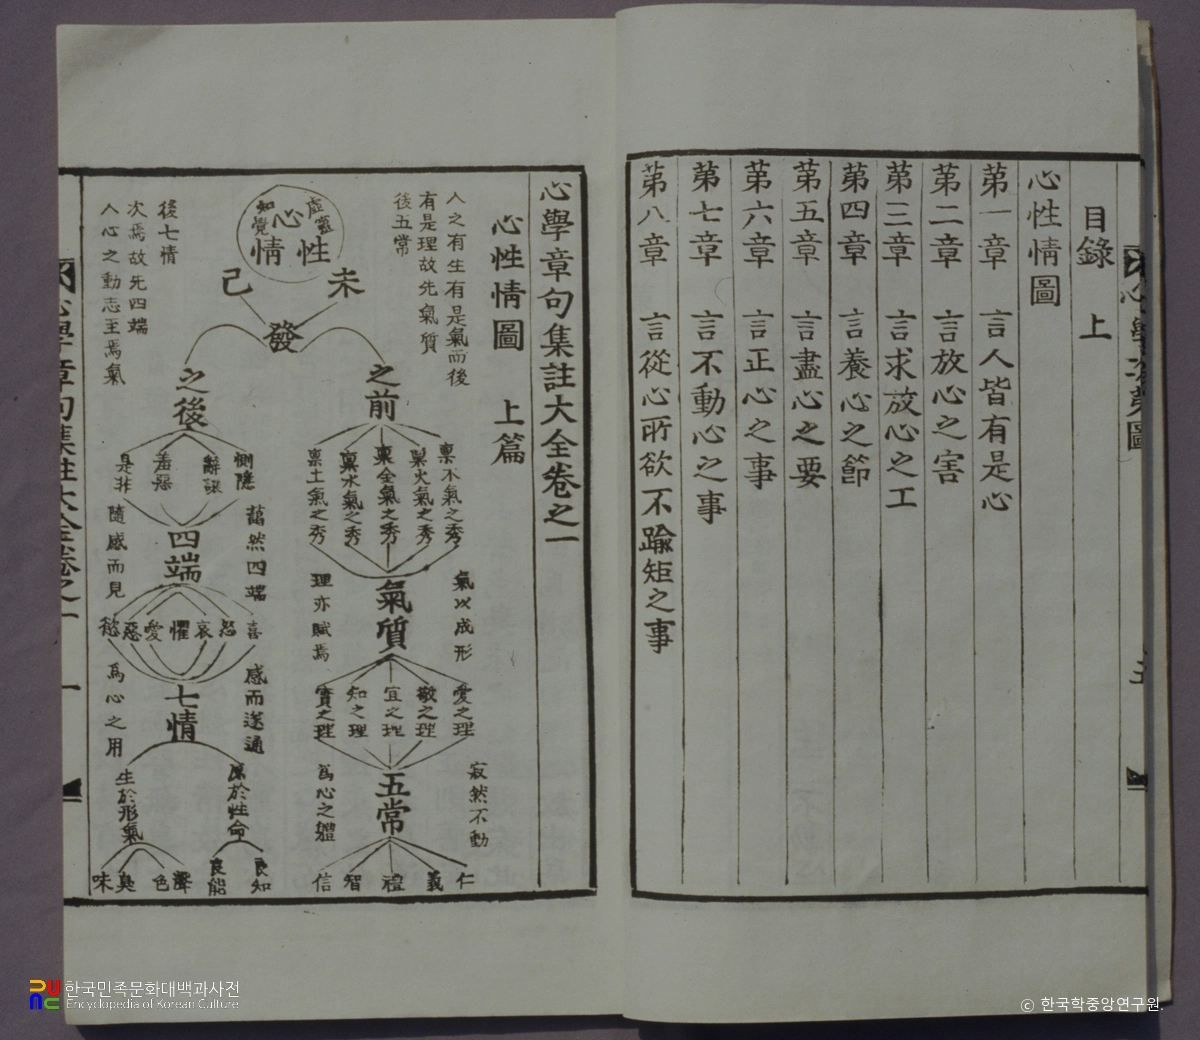 目錄 上
心性情圖
第一章 言人皆有是心
第二章 言放心之害
第三章 言求放心之工
第四章 言養心之節
第五章 言盡心之要
第六章 言正心之事
第七章 言不動心之事
第八章 言從心所欲不踰矩之事
心學章句集註大全卷之一
心性情圖 上篇
人之有生有是氣而後
有是理故先氣質
後五常
虛靈
心
知覺
性
情
未
已
發
之前
稟木氣之秀
稟火氣之秀
稟金氣之秀
稟水氣之秀
稟土氣之秀
氣以成形
氣質
理亦賦焉
愛之理
敬之理
宜之理
知之理
實之理
寂然不動
五常
為心之體
仁
義
禮
智
信
後七情
次焉故先四端
人心之動志至焉氣
之後
惻隱
辭讓
羞惡
是非
藹然四端
四端
隨感而見
喜
怒
哀
懼
愛
惡
慾
感而遂通
七情
為心之用
原於性命
生於形氣
良知
良能
聲
色
臭
味
心學章句集註大全卷之一
한국민족문화대백과사전
Encyclopedia of Korean Culture
ⓒ 한국학중앙연구원.